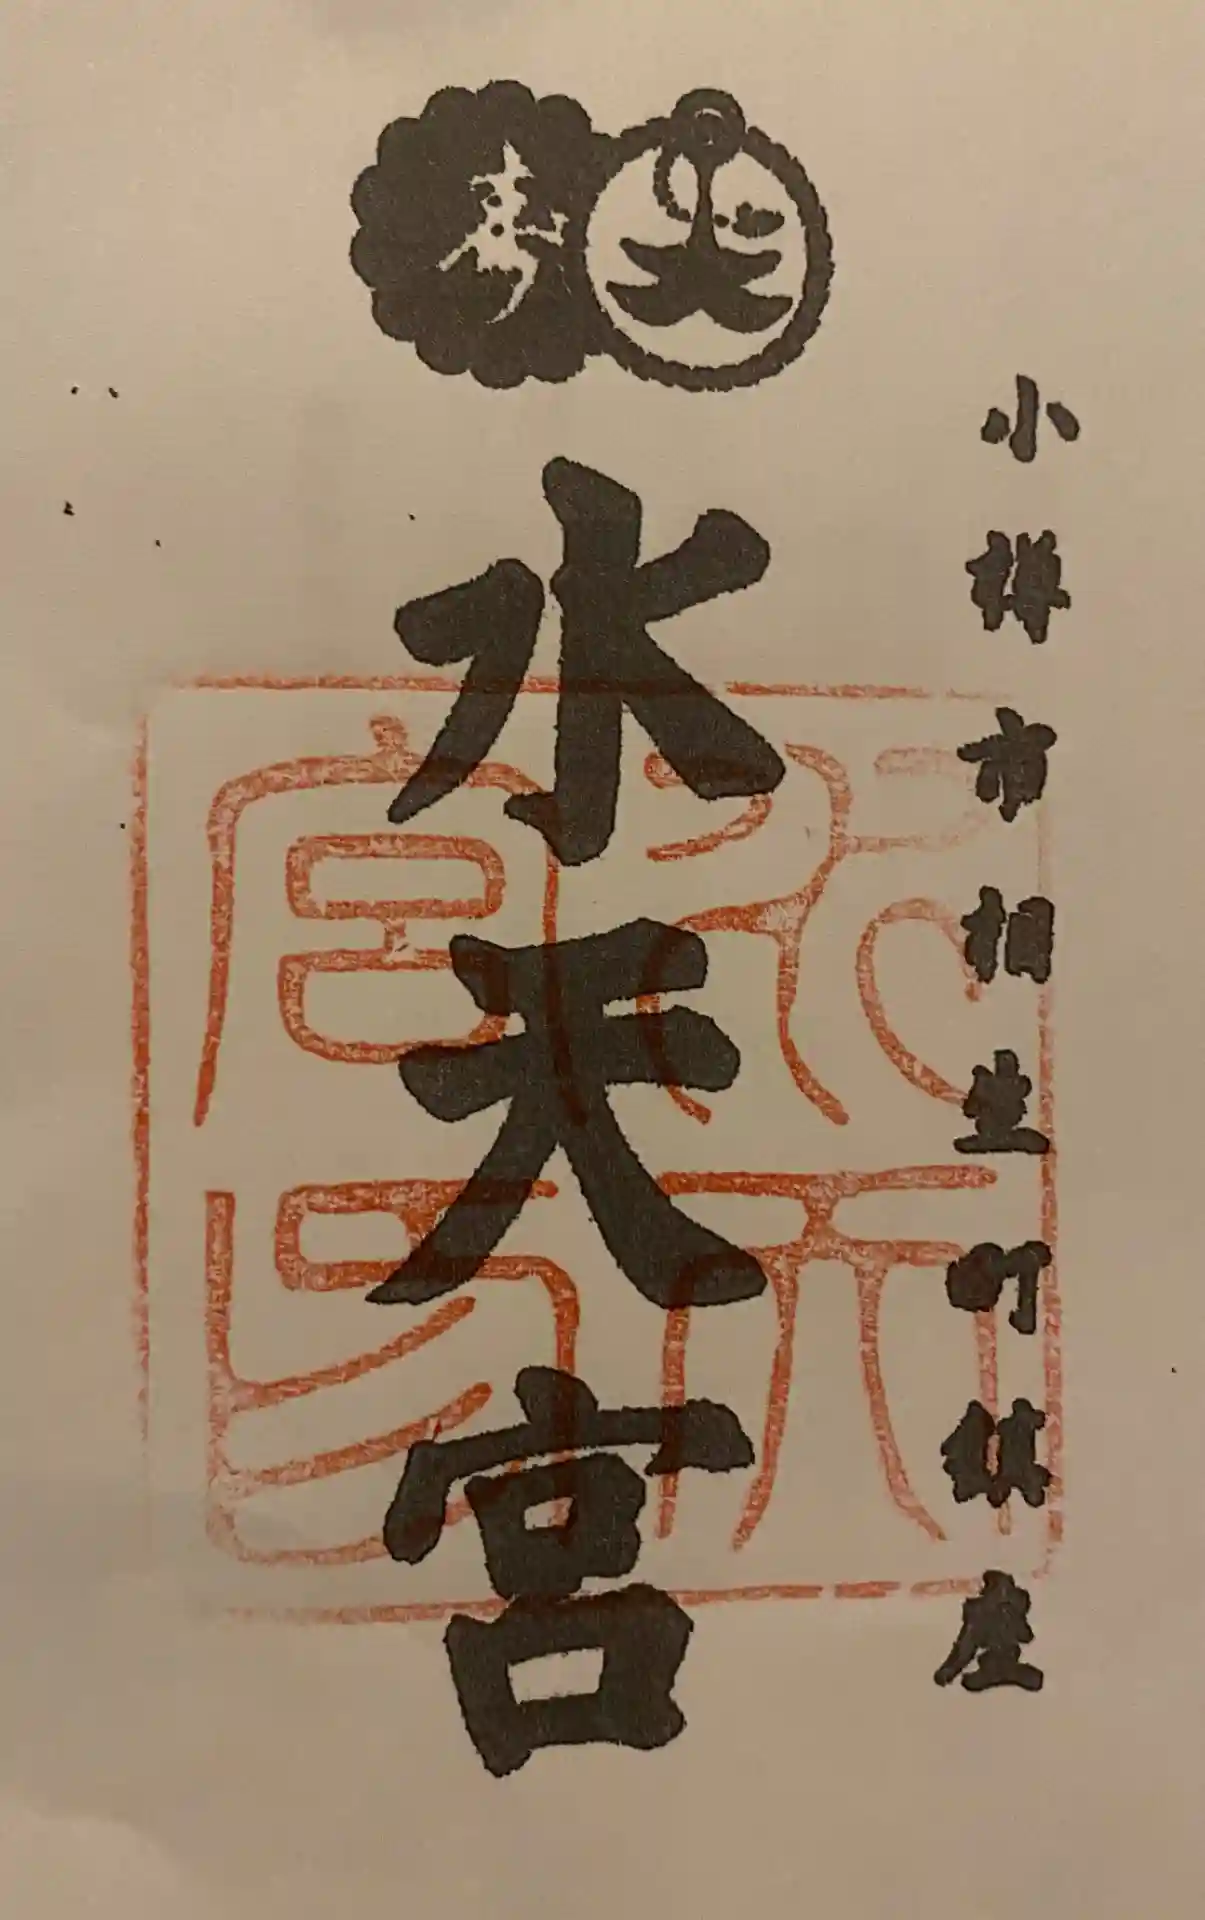 小樽市相生町鎮座
寿
水天宮
水天宮印